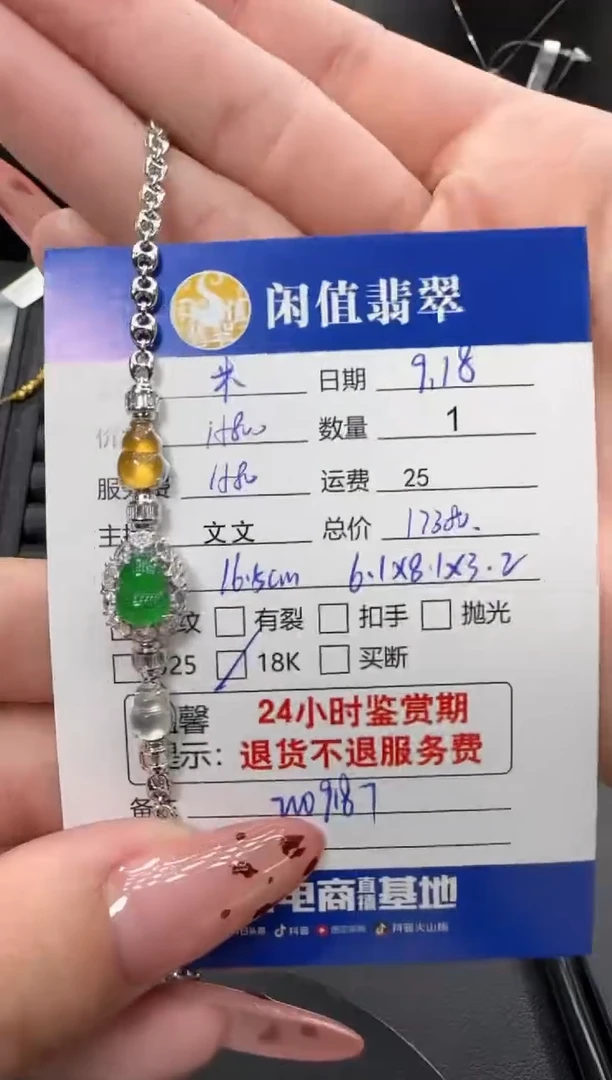 闲值翡翠
米 日期 9.18
数量 1
运费 25
文文 总价 17380.
16.5cm 6.1x8.1x3.2
纹 有裂 扣手 抛光
925 18K 买断
温馨 24小时鉴赏期
提示: 退货不退服务费
备注 no9187
电商直播基地
抖音 抖音火山版